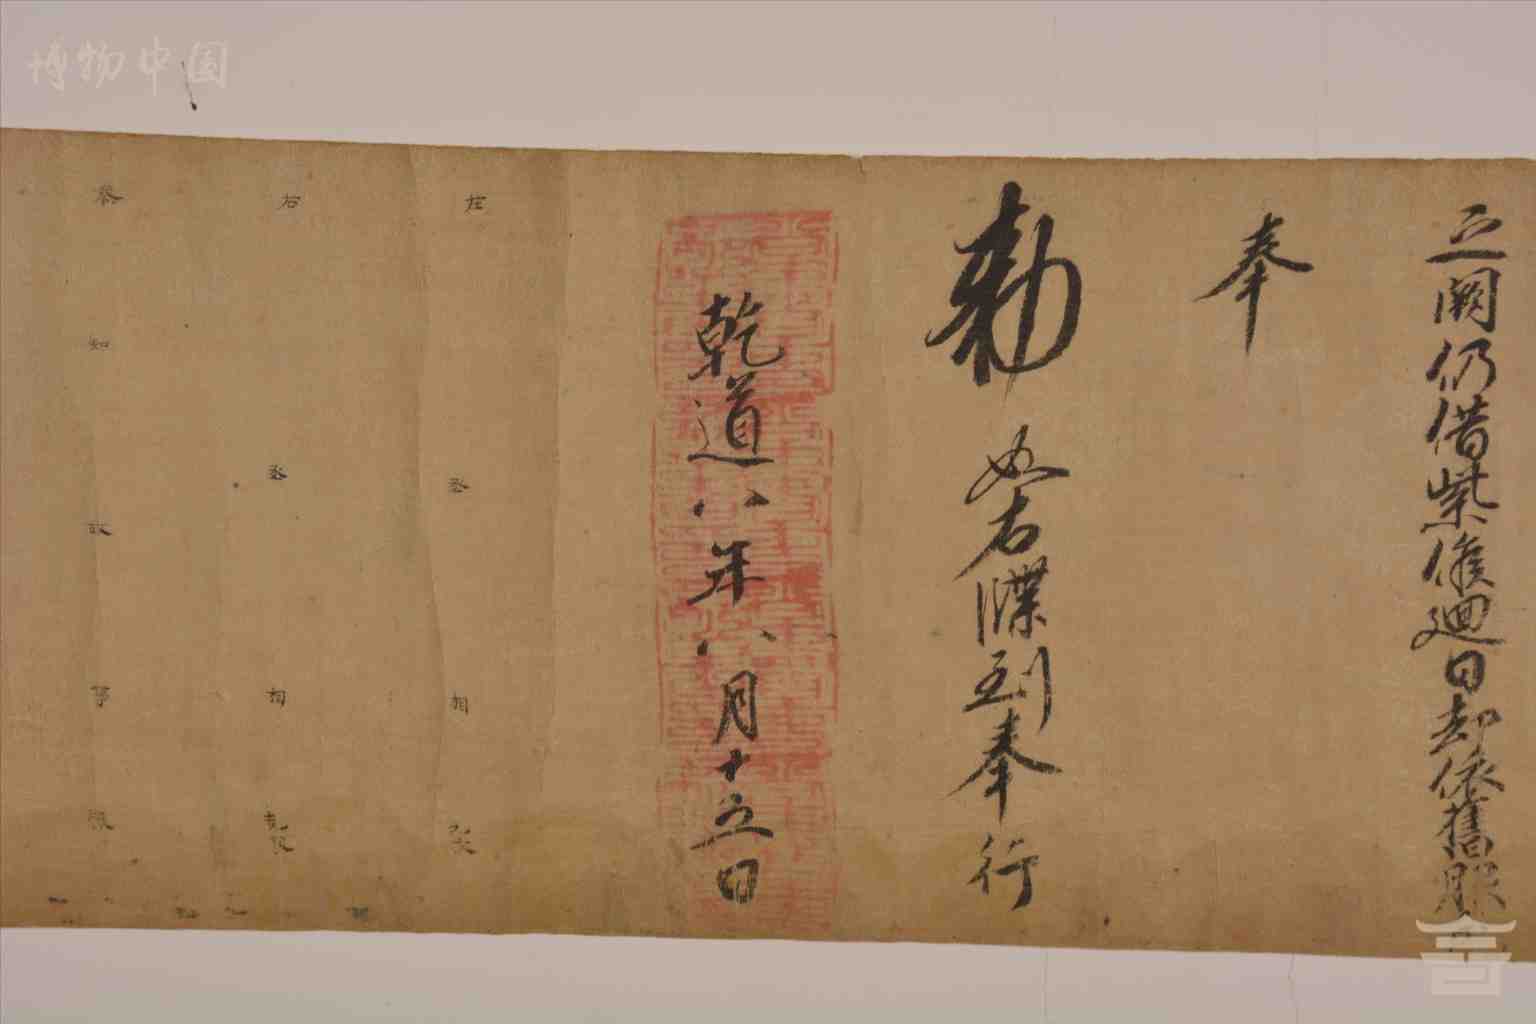 之闕仍借紫候廻日却依舊服色
奉
敕如右牒到奉行
乾道八年八月十五日
左丞相
右丞相克家
參知政事
博物中国